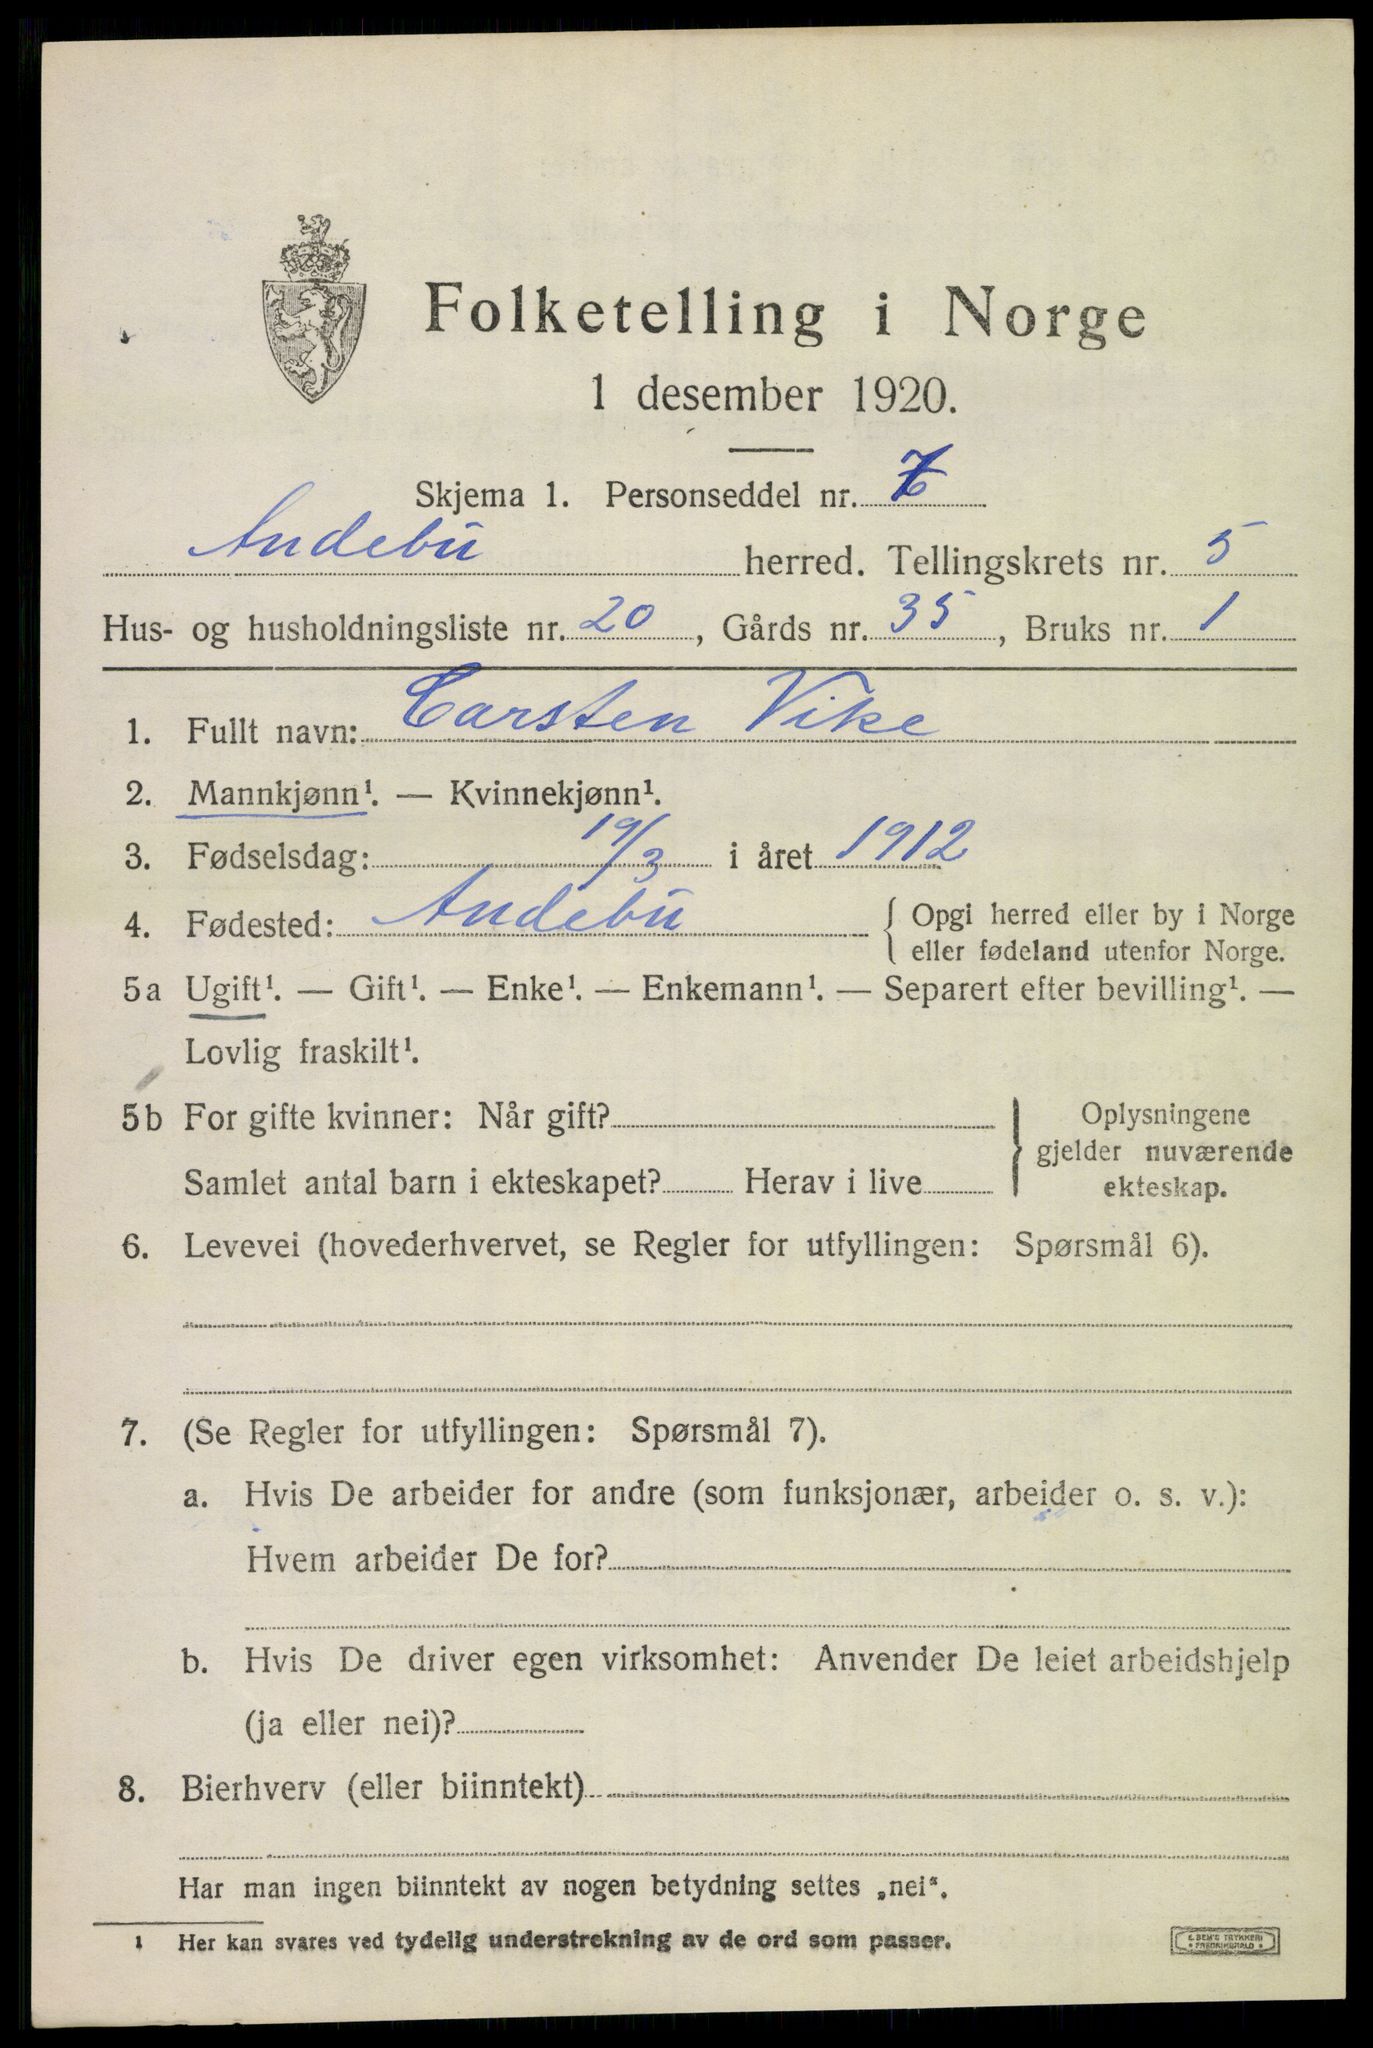 Folketelling i Norge
1 desember 1920.
Skjema 1. Personseddel nr. 7
Andebu herred. Tellingskrets nr. 5
Hus- og husholdningsliste nr. 20, Gårds nr. 35, Bruks nr. 1
1. Fullt navn: Carsten Vike
2. Mannkjønn¹. — Kvinnekjønn¹.
3. Fødselsdag: 19/3 i året 1912
4. Fødested: Andebu { Opgi herred eller by i Norge
eller fødeland utenfor Norge.
5a Ugift¹. — Gift¹. — Enke¹. — Enkemann¹. — Separert efter bevilling¹. —
Lovlig fraskilt¹.
5b For gifte kvinner: Når gift? } Oplysningene
gjelder nuværende
Samlet antal barn i ekteskapet? Herav i live ekteskap.
6. Levevei (hovederhvervet, se Regler for utfyllingen: Spørsmål 6).
7. (Se Regler for utfyllingen: Spørsmål 7).
a. Hvis De arbeider for andre (som funksjonær, arbeider o. s. v.):
Hvem arbeider De for?
b. Hvis De driver egen virksomhet: Anvender De leiet arbeidshjelp
(ja eller nei)?
8. Bierhverv (eller biinntekt)
Har man ingen biinntekt av nogen betydning settes „nei“.
¹ Her kan svares ved tydelig understrekning av de ord som passer.